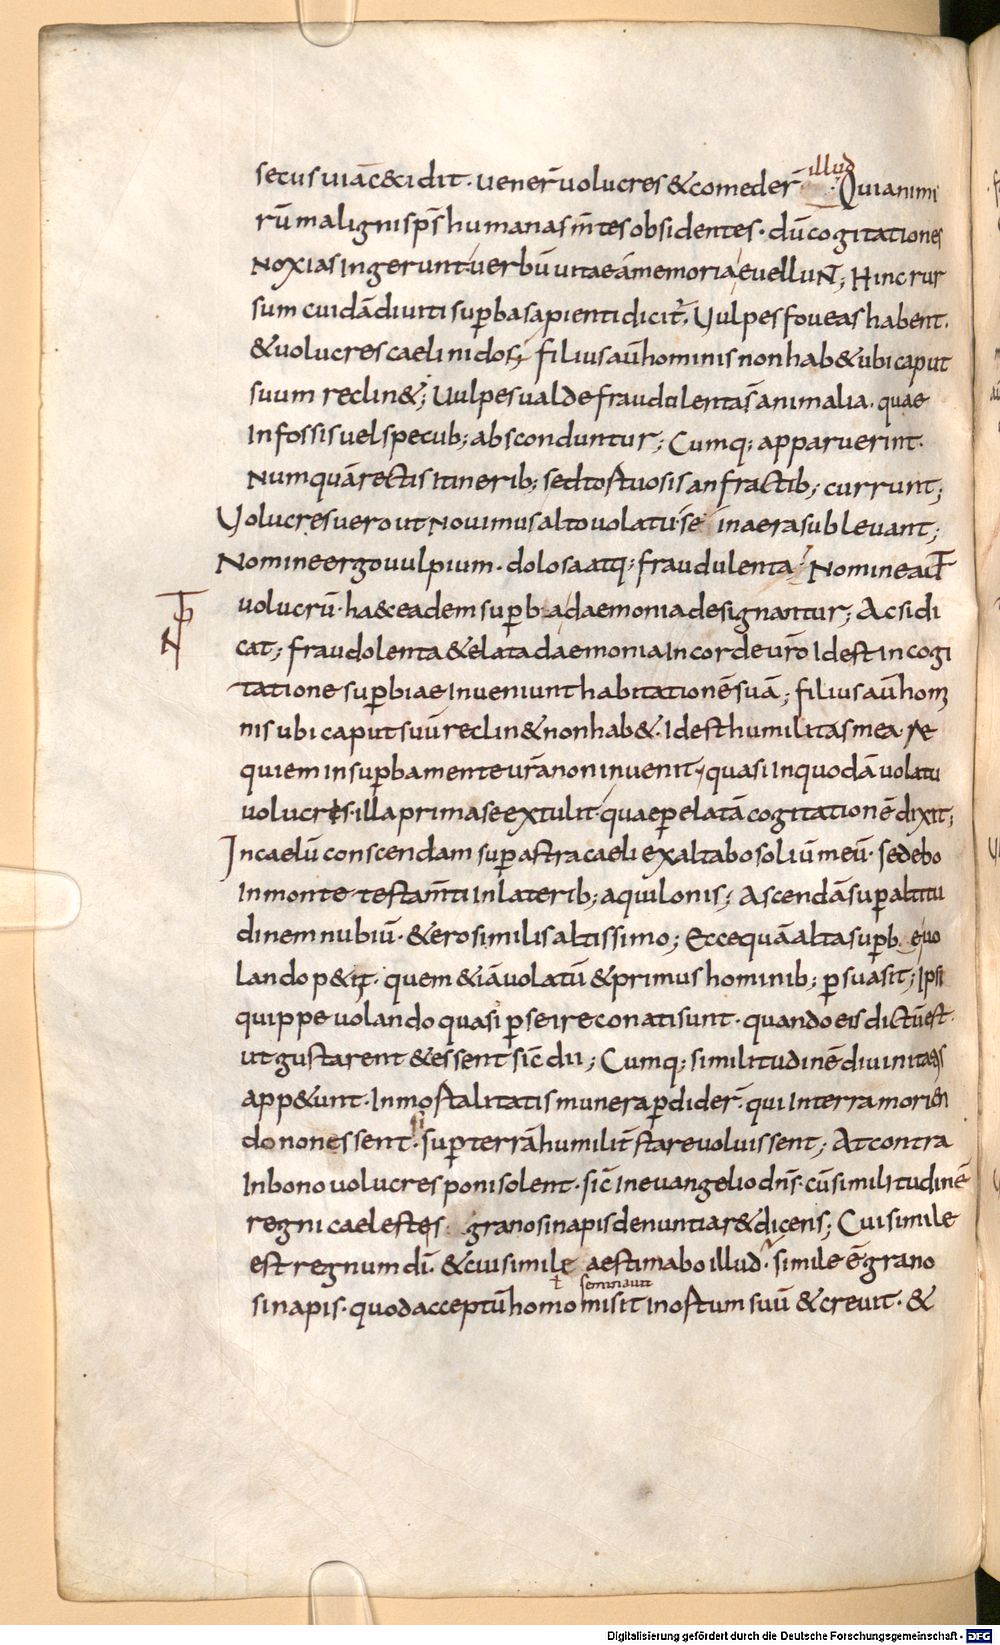 secus uiā c&idit · uener̄ uolucres & comeder̄ · illud · Quia nimi
rū maligni sp̄s humanas m̄tes obsidentes · dū cogitationes
Noxias ingerunt uerbū uitae a memoria euelluNT; Hinc rur
sum cuidā diuiti superba sapienti dicit̄ · Uulpes foueas habent ·
& uolucres caeli nidos; filius aū hominis non hab& ubi caput
suum reclin&; Uulpes ualde fraudulenta s̄ animalia · quae
In fossis uel specub; absconduntur; Cumq; apparuerint ·
Numquā rectis itinerib; sed tortuosis anfractib; currunt;
Uolucres uero ut Nouimus alto uolatu se in aera subleuant;
Nomine ergo uulpium · dolosa atq; fraudulenta · Nomine aūt
uolucrū · haec eadem superba daemonia designantur; Ac si di
cat; fraudolenta & elata daemonia In corde ur̄o Id est in cogi
tatione superbiae Inueniunt habitationē suā; filius aū homi
nis ubi caput suū reclin& non hab& · Id est humilitas mea re
quiem in superba mente ur̄a non inuenit · quasi In quodā uolatu
uolucres · illa prima se extulit · quae per elatā cogitationē dixit;
In caelū conscendam super astra caeli exaltabo soliū meū · sedebo
In monte testam̄ti In laterib; aquilonis; Ascendā super altitu
dinem nubiū · & ero similis altissimo; Ecce quā alta superb euo
lando p&it · quem & iā uolatū & primus hominib; persuasit; Ipsi
quippe uolando quasi per se ire conati sunt · quando eis dictū est ·
ut gustarent & essent sic̄ dii; Cumq; similitudinē diuinitatis
app&unt · Inmortalitatis munera perdider̄ · qui In terra morien
do non essent · si super terrā humilit̄ stare uoluissent; At contra
In bono uolucres poni solent · sic̄ In euangelio dn̄s · cū similitudinē
regni caelestes grano sinapis denuntiar& dicens; Cui simile
est regnum dī · & cui simile aestimabo illud · simile ē grano
ł seminauit
sinapis · quod acceptū homo misit in ortum suū & creuit · &
Digitalisierung gefördert durch die Deutsche Forschungsgemeinschaft - DFG